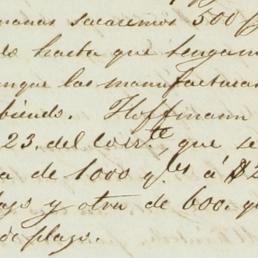 manas sacaremos 500
do hasta que tengam
nque las manufacturas
biendo. Hoffmann
23. del corr.te que se
a de 1000 q.les á $2
lazo y otra de 600. q
de plazo.